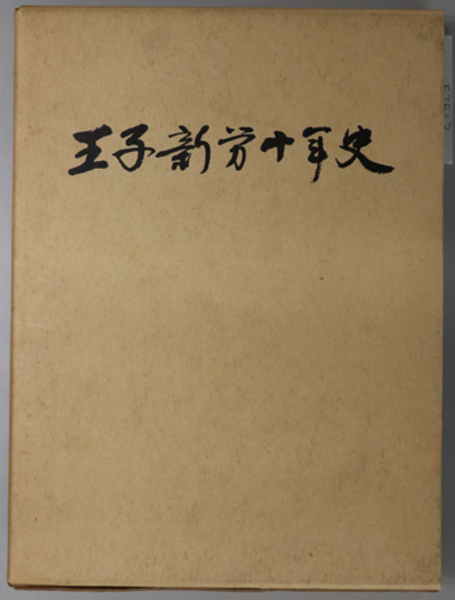 王子新労十年史